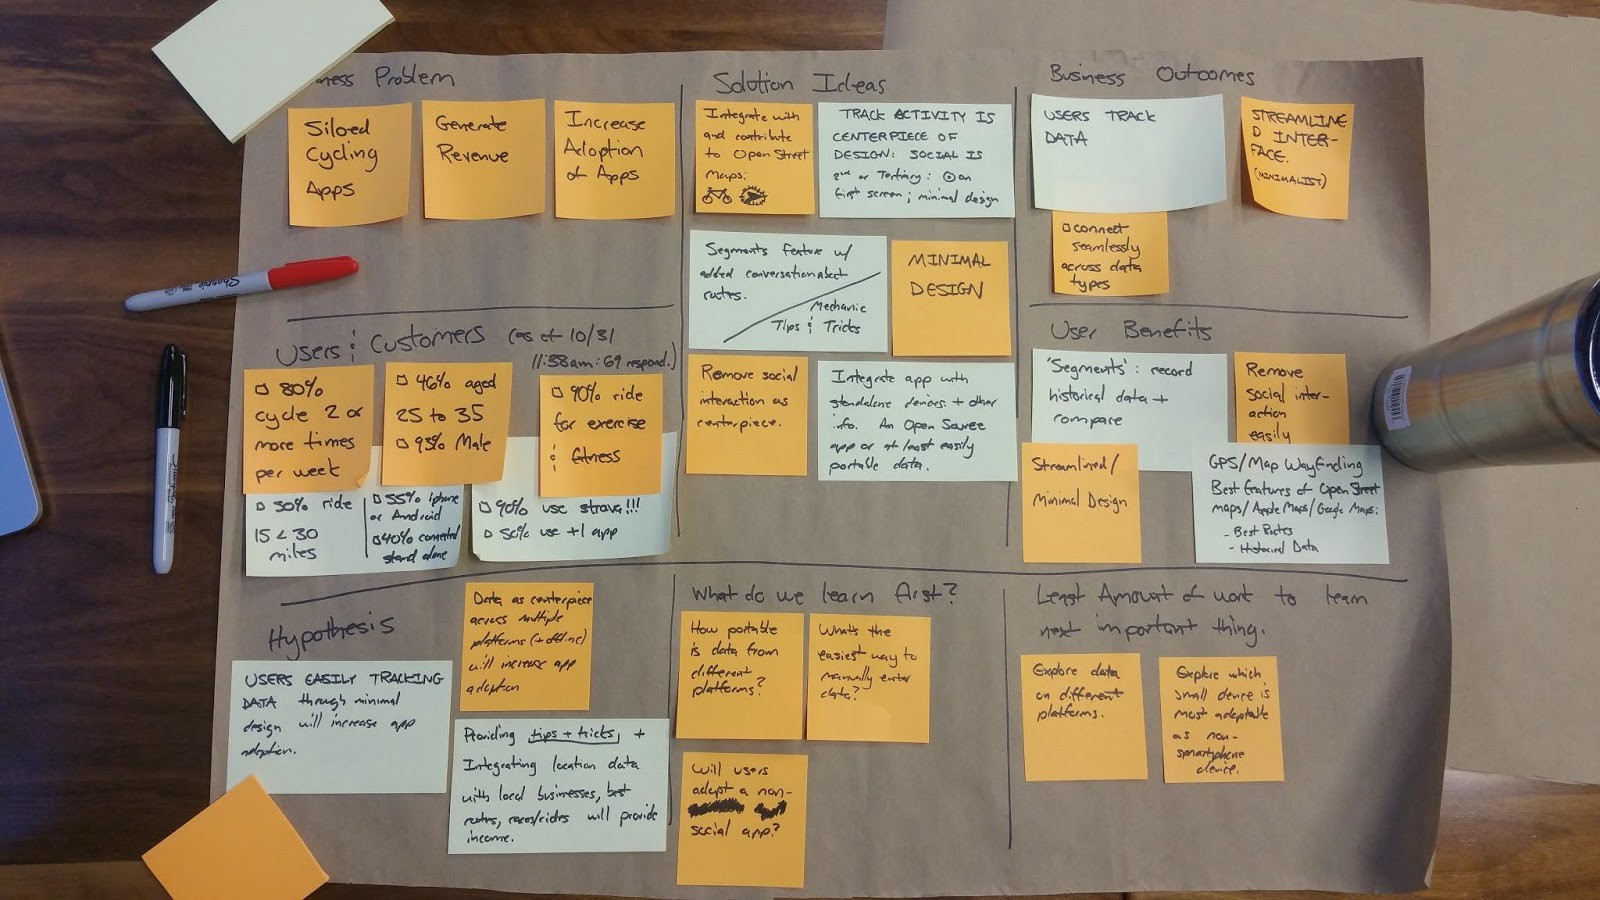 ness Problem
Siloed
Cycling
Apps
Generate
Revenue
Increase
Adoption
of Apps
Solution Ideas
Integrate with
and contribute
to Open Street
Maps:
TRACK ACTIVITY IS
CENTERPIECE OF
DESIGN: SOCIAL IS
2nd or Tertiary: on
first screen; minimal design
Segments feature w/
added conversation about
routes.
Mechanic
Tips & Tricks
MINIMAL
DESIGN
Remove social
interaction as
centerpiece.
Integrate app with
standalone devices + other
info. An Open Source
app or at least easily
portable data.
Business Outcomes
USERS TRACK
DATA
STREAMLINE
D INTER-
FACE.
(MINIMALIST)
connect
seamlessly
across data
types
Users & Customers (as of 10/31
11:58am: 69 respond.)
80%
cycle 2 or
more times
per week
46% aged
25 to 35
93% Male
90% ride
for exercise
& fitness
50% ride
15 < 30
miles
55% iphone
or Android
40% connected
stand alone
90% use strava!!!
50% use +1 app
User Benefits
'Segments': record
historical data +
compare
Remove
social inter-
action
easily
Streamlined/
Minimal Design
GPS/Map Wayfinding
Best features of Open Street
maps/Apple Maps/Google Maps:
- Best Routes
- Historical Data
Hypothesis
Data as centerpiece
across multiple
platforms (+ offline)
will increase app
adoption
USERS EASILY TRACKING
DATA through minimal
design will increase app
adoption.
Providing tips + tricks, +
Integrating location data
with local businesses, best
routes, races/rides will provide
income.
What do we learn first?
How portable
is data from
different
platforms?
What's the
easiest way to
manually enter
data?
Will users
adopt a non-
social app?
Least Amount of work to learn
next important thing.
Explore data
on different
platforms.
Explore which
small device is
most adaptable
as non-
smartphone
device.
Sharpie